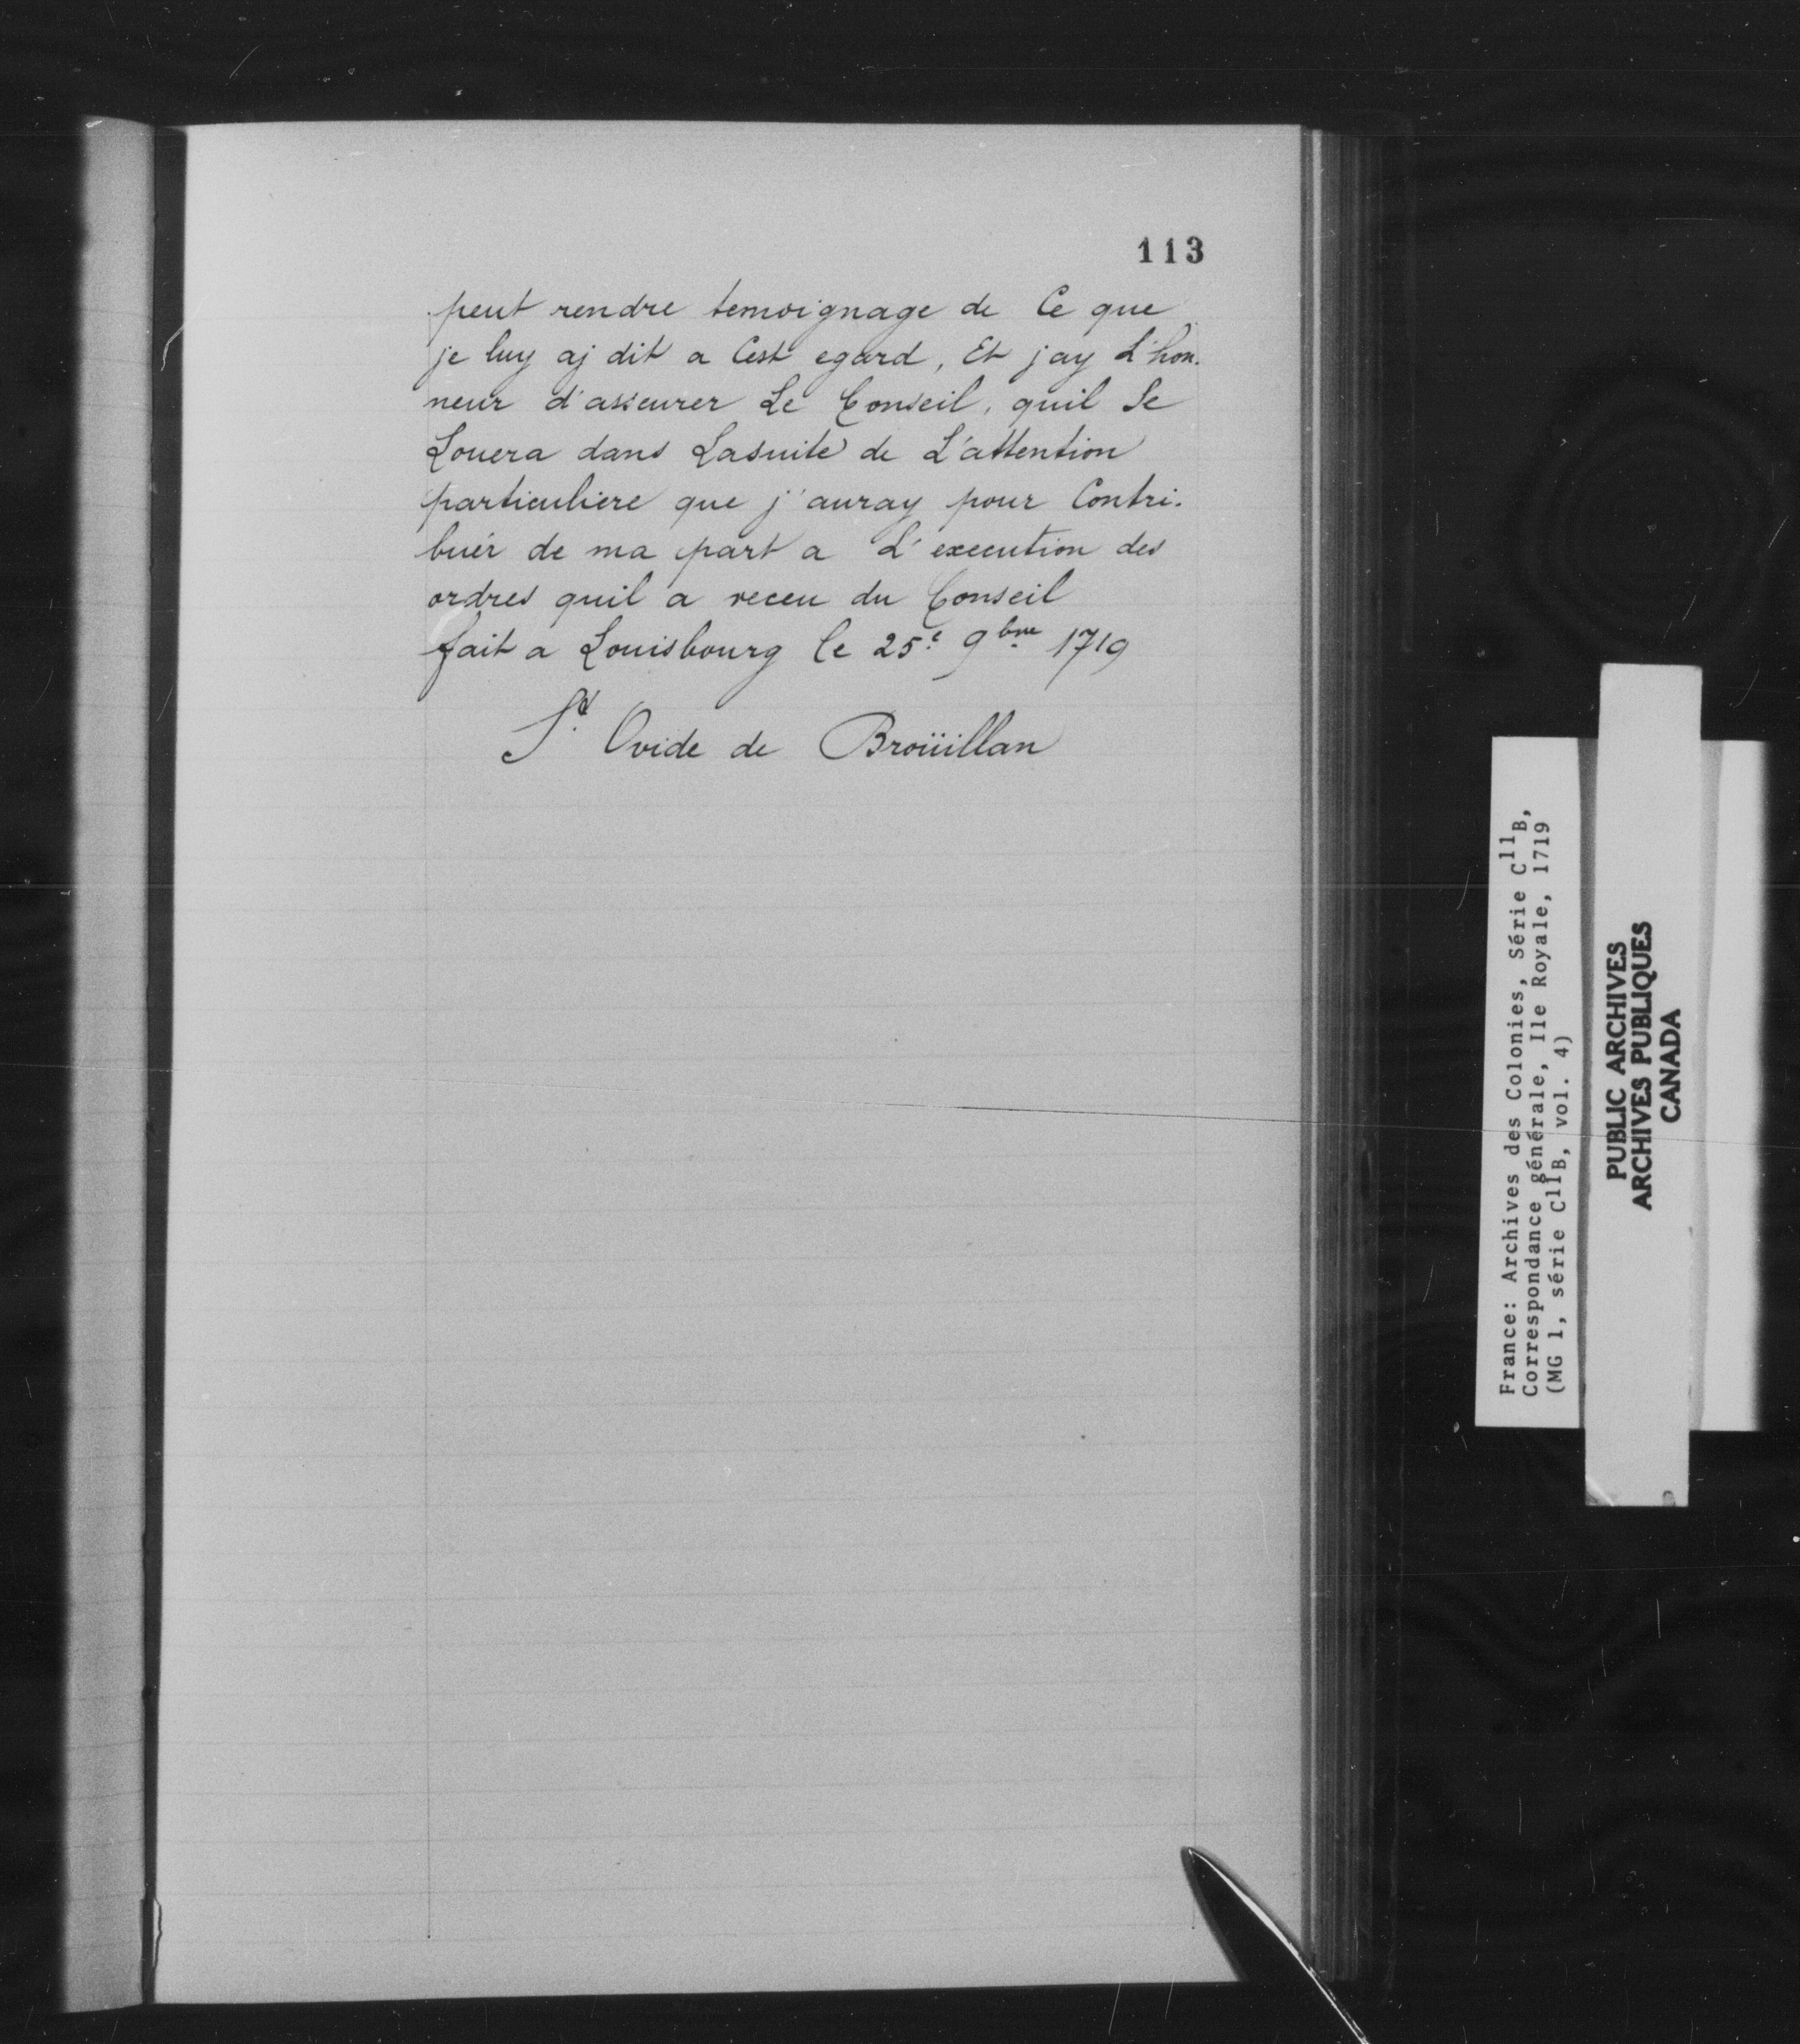 113
peut rendre temoignage de Ce que
je luy aj dit a Cest egard, Et jay L'hon.
neur d'asseurer Le Conseil, quil Se
Louera dans Lasuite de L'attention
particuliere que j'auray pour Contri.
buér de ma part a L'execution des
ordres quil a receu du Conseil
fait a Louisbourg le 25e 9bre 1719
St. Ovide de Broüillan
France: Archives des Colonies, Série C11B,
Correspondance générale, Ile Royale, 1719
(MG 1, série C11B, vol. 4)
PUBLIC ARCHIVES
ARCHIVES PUBLIQUES
CANADA